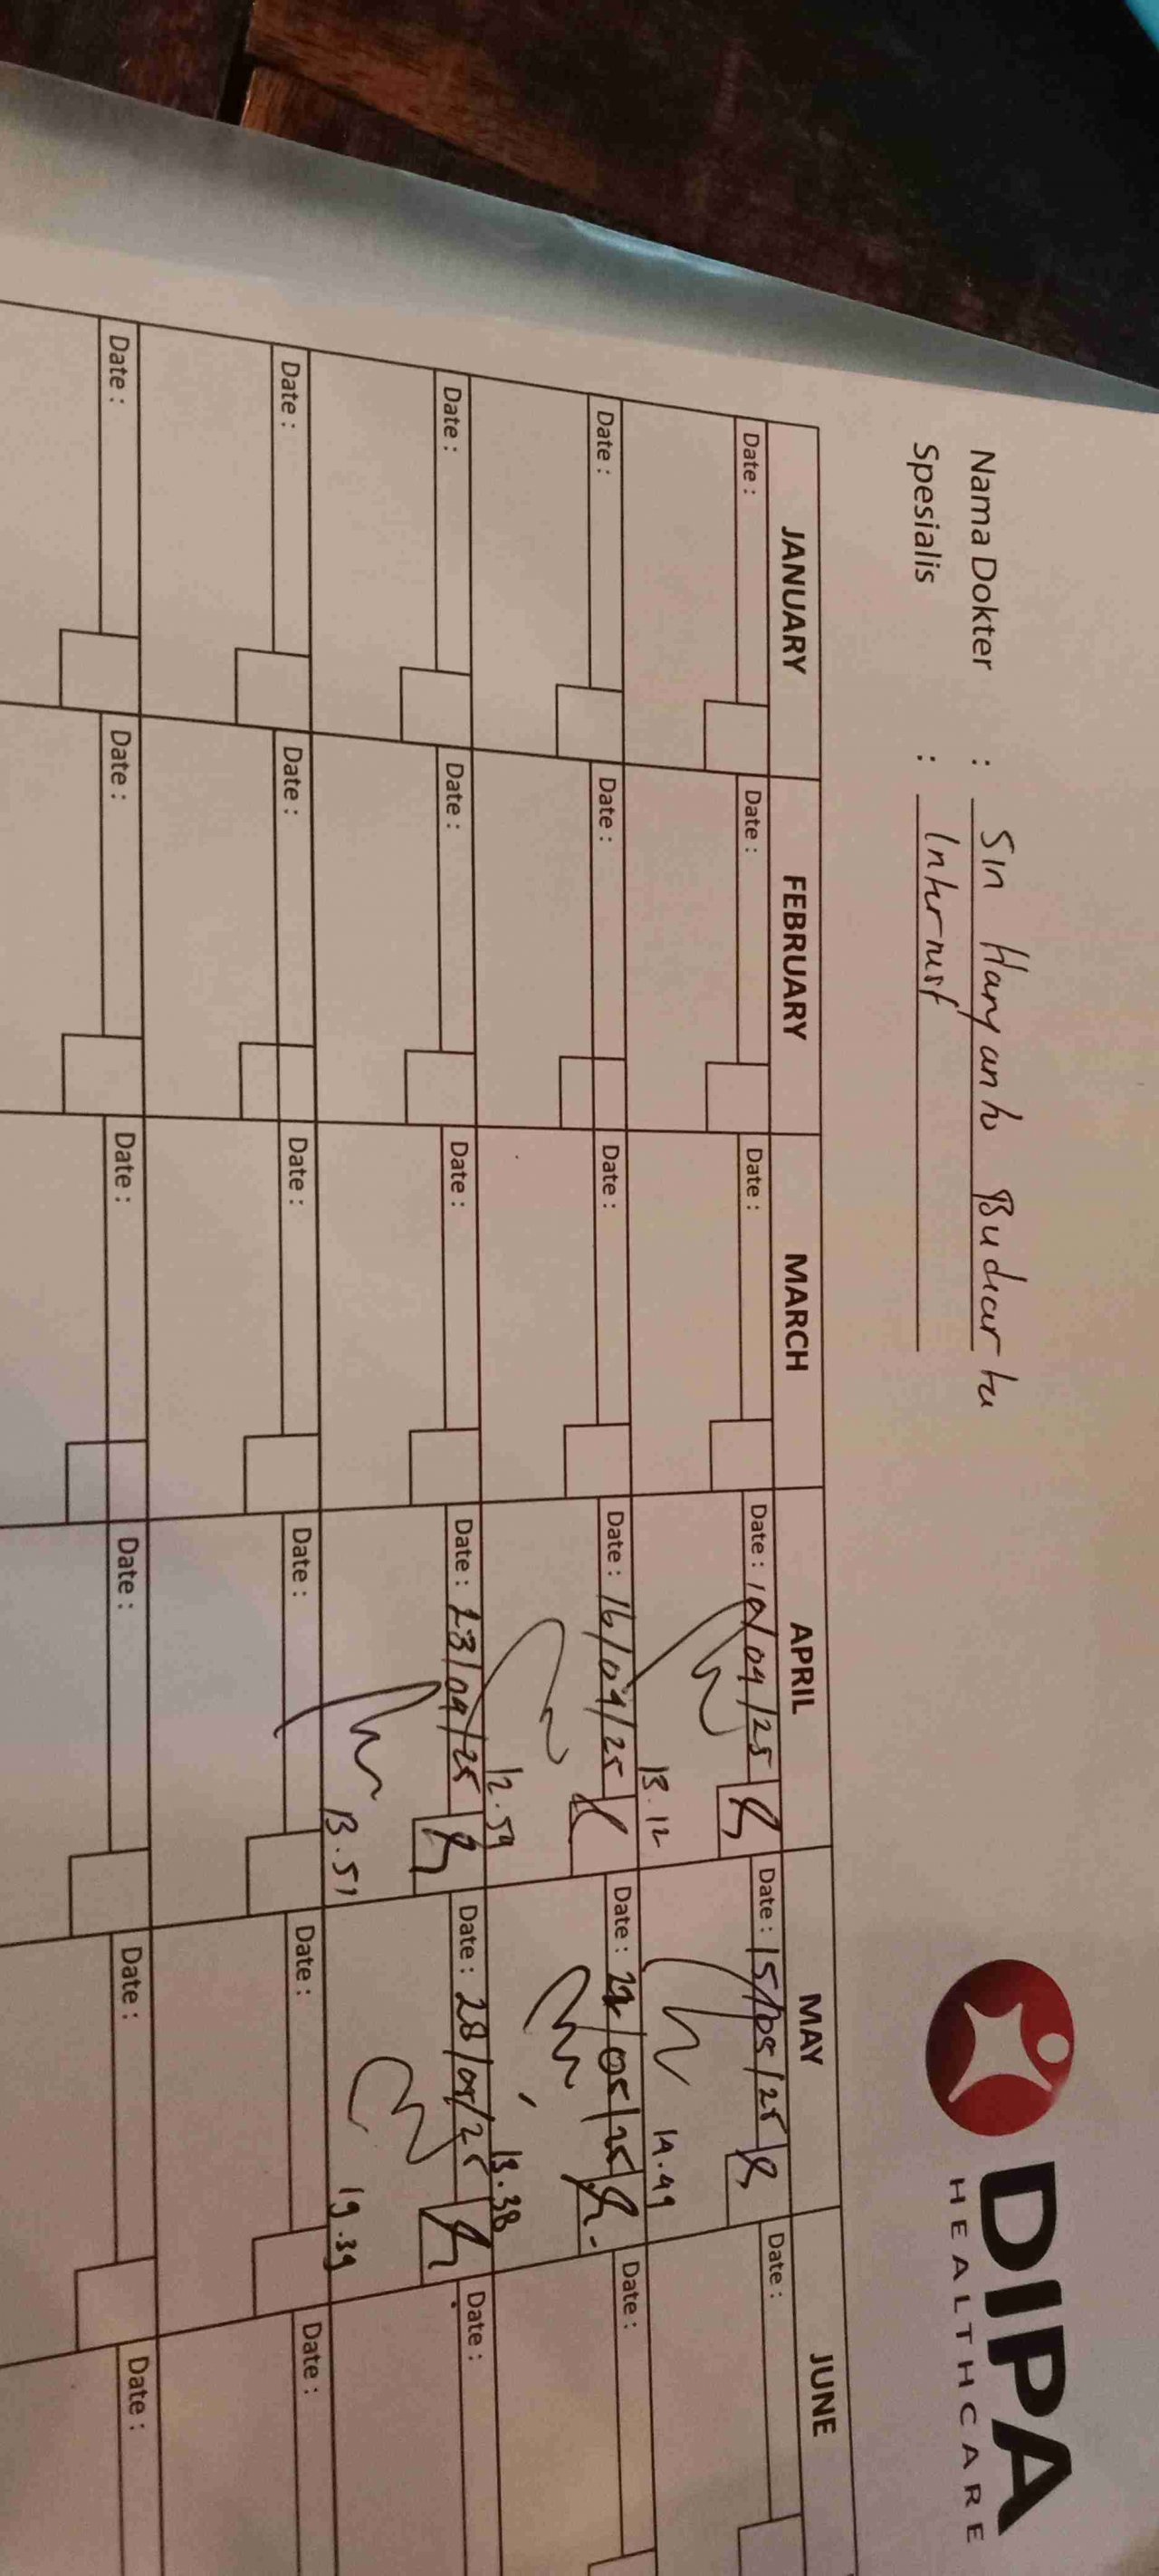 DIPA
HEALTHCARE
Nama Dokter : Sin Haryanto Budiarta
Spesialis : Internist
JANUARY FEBRUARY MARCH APRIL MAY JUNE
Date : Date : Date : Date : 10/04/25 Date : 15/05/25 Date :
13.12 14.49
Date : Date : Date : Date : 16/04/25 Date : 22/05/25 Date :
12.59 13.38
Date : Date : Date : Date : 23/04/25 Date : 28/05/25 Date :
13.51 19.39
Date : Date : Date : Date : Date : Date :
Date : Date : Date : Date : Date : Date :